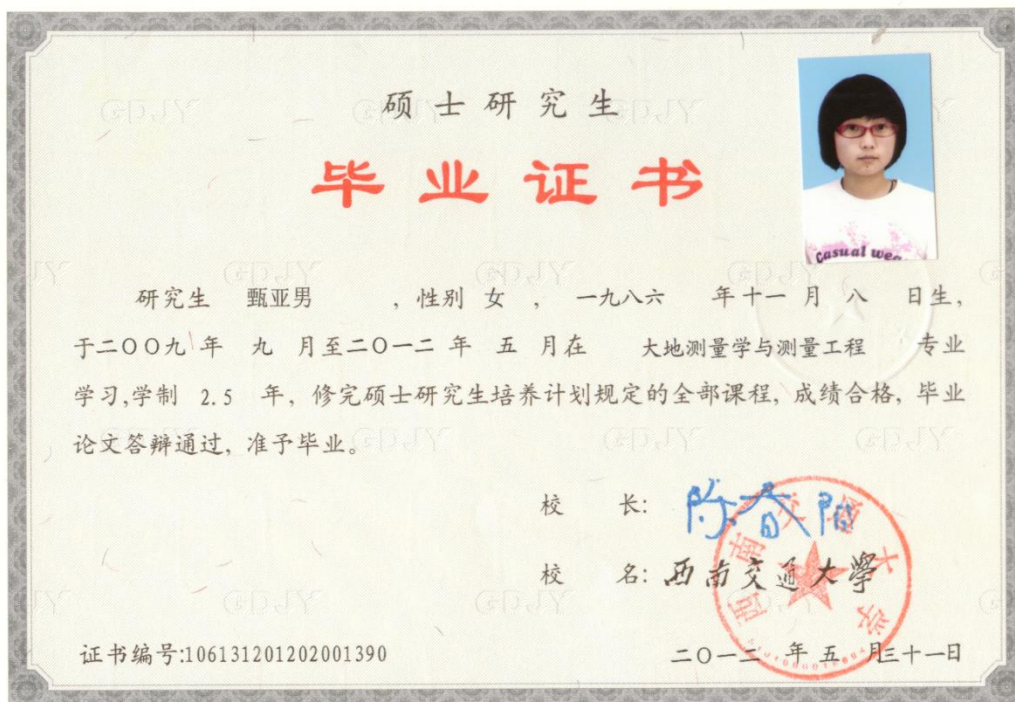 硕士研究生
毕业证书
Casual wea
研究生 甄亚男 ,性别 女 , 一九八六 年十一 月 八 日生,
于二〇〇九 年 九 月至二〇一二 年 五 月在 大地测量学与测量工程 专业
学习,学制 2.5 年, 修完硕士研究生培养计划规定的全部课程, 成绩合格, 毕业
论文答辩通过, 准予毕业。
校 长: 陈春阳
校 名: 西南交通大學
西南交通大学
证书编号:106131201202001390
二〇一二 年 五 月三十一日
GDJY